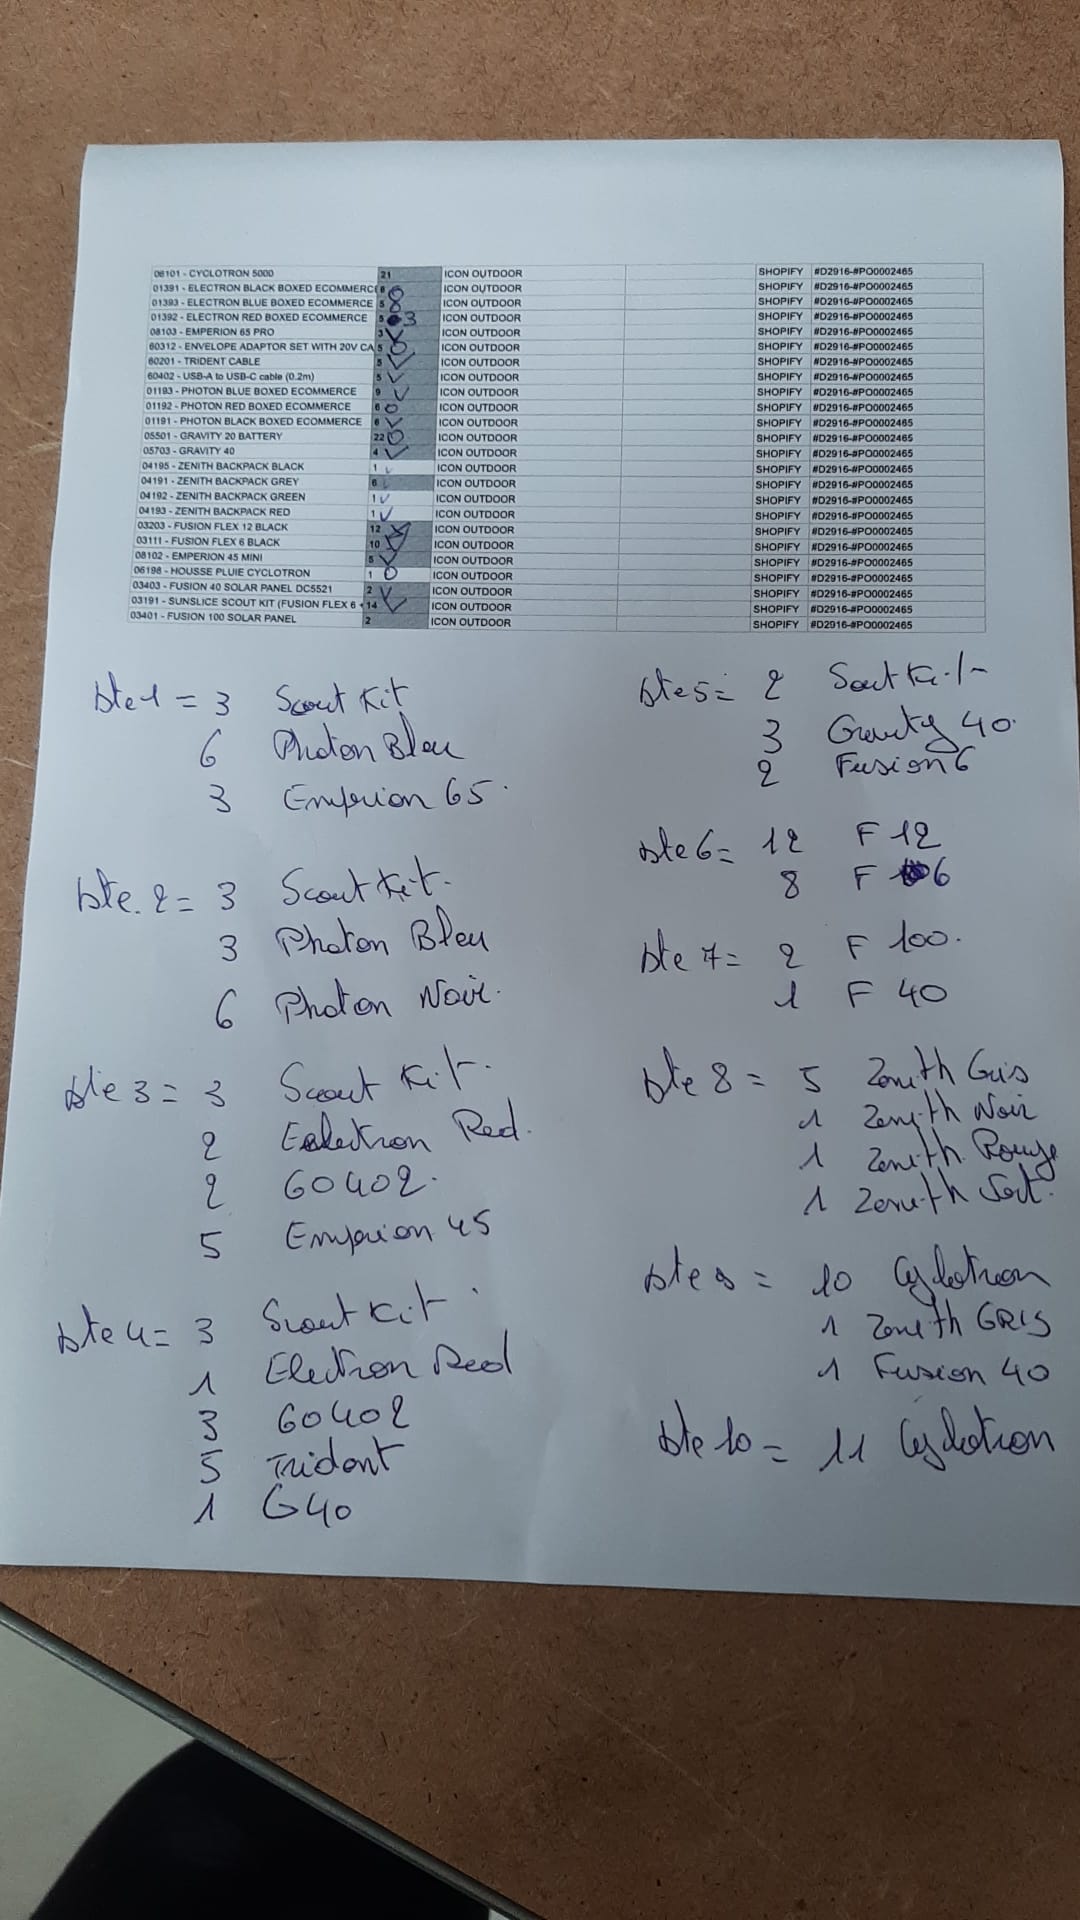 08101 - CYCLOTRON 5000 21 ICON OUTDOOR SHOPIFY #D2916-#PO0002465
01391 - ELECTRON BLACK BOXED ECOMMERCI 6 0 ICON OUTDOOR SHOPIFY #D2916-#PO0002465
01393 - ELECTRON BLUE BOXED ECOMMERCE 5 ICON OUTDOOR SHOPIFY #D2916-#PO0002465
01392 - ELECTRON RED BOXED ECOMMERCE 5 3 ICON OUTDOOR SHOPIFY #D2916-#PO0002465
08103 - EMPERION 65 PRO 3 ICON OUTDOOR SHOPIFY #D2916-#PO0002465
60312 - ENVELOPE ADAPTOR SET WITH 20V CA 5 0 ICON OUTDOOR SHOPIFY #D2916-#PO0002465
60201 - TRIDENT CABLE 5 ICON OUTDOOR SHOPIFY #D2916-#PO0002465
60402 - USB-A to USB-C cable (0.2m) 5 ICON OUTDOOR SHOPIFY #D2916-#PO0002465
01193 - PHOTON BLUE BOXED ECOMMERCE 9 ICON OUTDOOR SHOPIFY #D2916-#PO0002465
01192 - PHOTON RED BOXED ECOMMERCE 6 0 ICON OUTDOOR SHOPIFY #D2916-#PO0002465
01191 - PHOTON BLACK BOXED ECOMMERCE 6 ICON OUTDOOR SHOPIFY #D2916-#PO0002465
05501 - GRAVITY 20 BATTERY 22 0 ICON OUTDOOR SHOPIFY #D2916-#PO0002465
05703 - GRAVITY 40 4 ICON OUTDOOR SHOPIFY #D2916-#PO0002465
04195 - ZENITH BACKPACK BLACK 1 ICON OUTDOOR SHOPIFY #D2916-#PO0002465
04191 - ZENITH BACKPACK GREY 6 ICON OUTDOOR SHOPIFY #D2916-#PO0002465
04192 - ZENITH BACKPACK GREEN 1 ICON OUTDOOR SHOPIFY #D2916-#PO0002465
04193 - ZENITH BACKPACK RED 1 ICON OUTDOOR SHOPIFY #D2916-#PO0002465
03203 - FUSION FLEX 12 BLACK 12 ICON OUTDOOR SHOPIFY #D2916-#PO0002465
03111 - FUSION FLEX 6 BLACK 10 ICON OUTDOOR SHOPIFY #D2916-#PO0002465
08102 - EMPERION 45 MINI 5 ICON OUTDOOR SHOPIFY #D2916-#PO0002465
06198 - HOUSSE PLUIE CYCLOTRON 1 0 ICON OUTDOOR SHOPIFY #D2916-#PO0002465
03403 - FUSION 40 SOLAR PANEL DC5521 2 ICON OUTDOOR SHOPIFY #D2916-#PO0002465
03191 - SUNSLICE SCOUT KIT (FUSION FLEX 6 + 14 ICON OUTDOOR SHOPIFY #D2916-#PO0002465
03401 - FUSION 100 SOLAR PANEL 2 ICON OUTDOOR SHOPIFY #D2916-#PO0002465
bte 1 = 3 Scout Kit
6 Photon Bleu
3 Emperion 65.
bte. 2 = 3 Scout Kit.
3 Photon Bleu
6 Photon Noir.
bte 3 = 3 Scout Kit.
2 Electron Red.
2 60402.
5 Emperion 45
bte 4 = 3 Scout Kit
1 Electron Red
3 60402
5 Trident
1 G40
bte 5 = 2 Scout Kit
3 Gravity 40.
2 Fusion 6
bte 6 = 12 F 12
8 F 6
bte 7 = 2 F 100.
1 F 40
bte 8 = 5 Zenith Gris
1 Zenith Noir
1 Zenith Rouge
1 Zenith
bte 9 = 10 Cyclotron
1 Zenith GRIS
1 Fusion 40
bte 10 = 11 Cyclotron